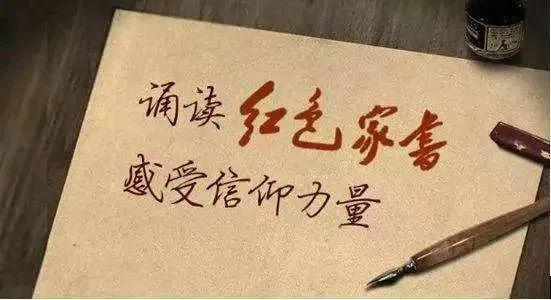 诵读红色家书
感受信仰力量